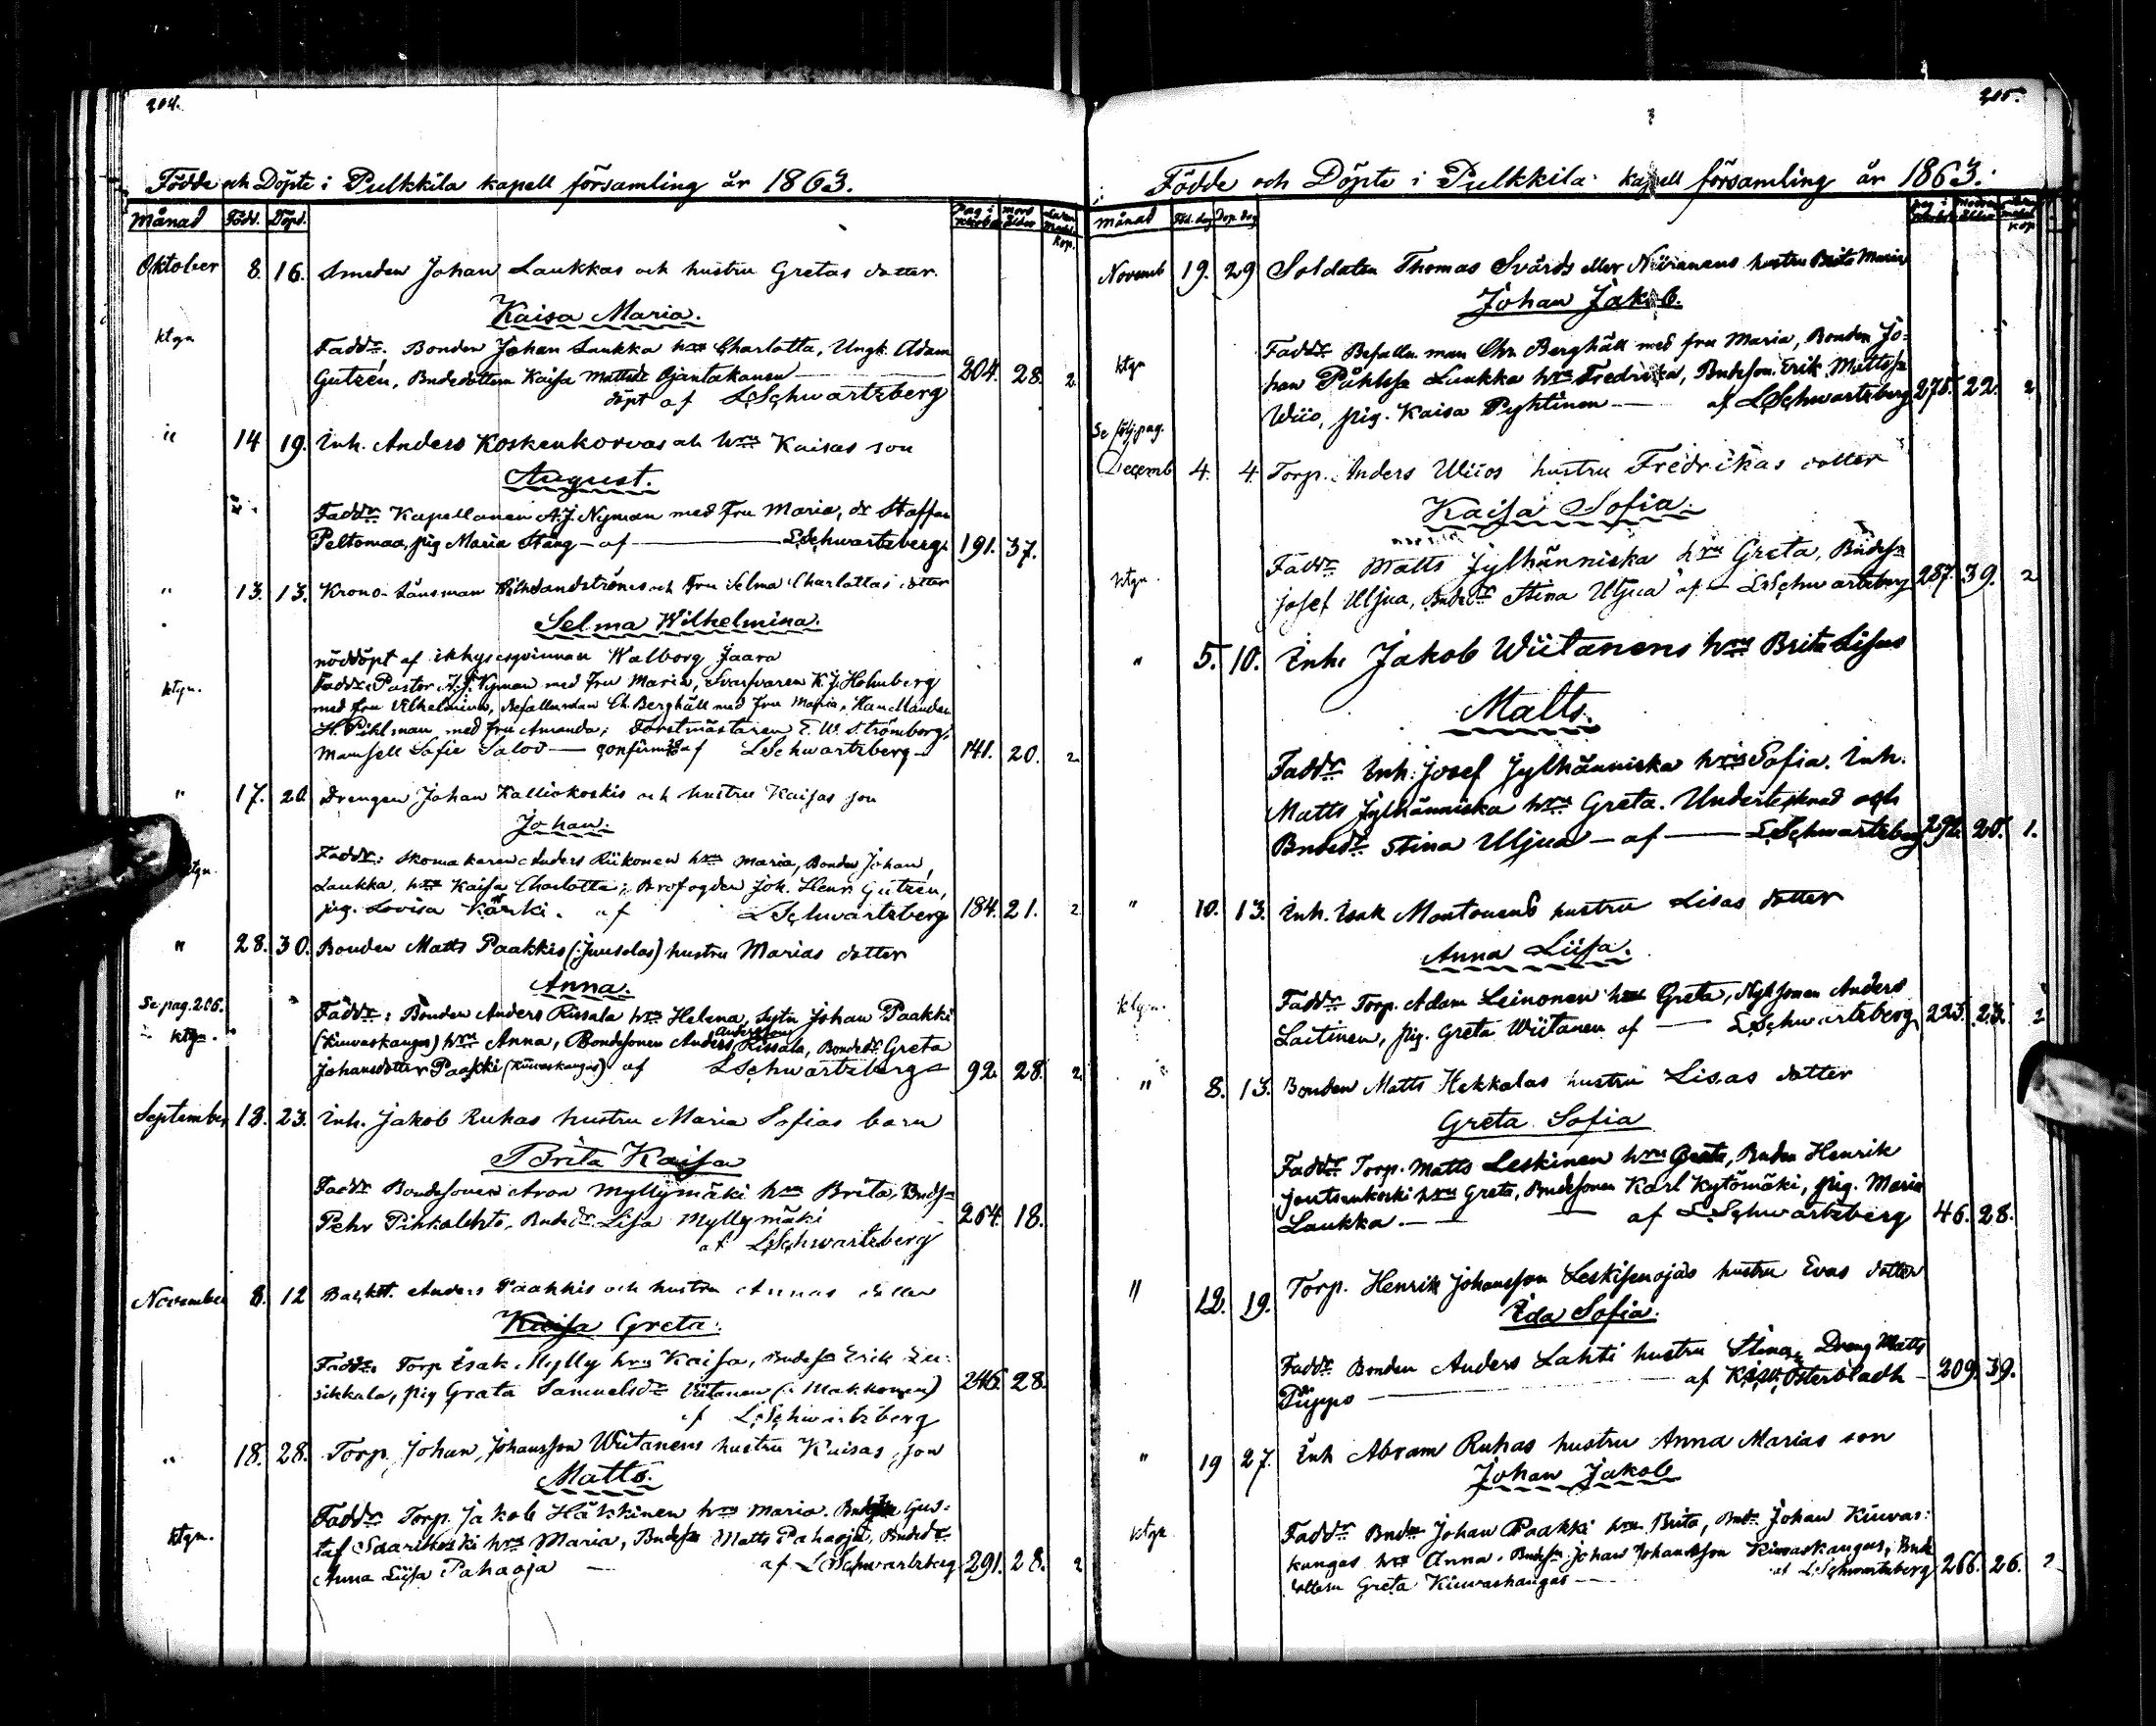 204.
Födde och Döpte i Pulkkila kapell församling år 1863.
Månad Född. Döpd. Pag i mod ålder
Oktober 8. 16. Smeden Johan Laukkas och hustru Gretas dotter
Kaisa Maria.
ktgn Faddr. Bonden Johan Laukka hru Charlotta, Ungk. Adam
Gutzén, Bndedottern Kaisa Mattsdr Ojantakanen 204. 28. 2
döpt af LSchwartzberg
" 14 19. Inh. Anders Koskenkorvas och hru Kaisas son
August.
Faddr Kapellanen A.J. Nyman med Fru Maria, dr Staffan
Peltomaa, pig Maria Stång - af LSchwartzberg 191. 37.
" 13. 13. Krono-Länsman och Fru Selma Charlottas dotter
Selma Wilhelmina.
nöddöpt af Walborg Jaara
ktgn. Faddr. Pastor A.J. Nyman med Fru Maria, K.J. Holmberg
med fru Vilhelmina, Befallnman Ch. Berghäll med Fru Maria, Handlanden
H. Pihlman med fru Amanda; Forstmästaren E.W. Strömborg,
Mamsell Sofie Salov — af LSchwartzberg 141. 20. 2
" 17. 20. Drengen Johan Kalliokoskis och hustru Kaisas son
Johan.
ktgn. Faddr: Skomakaren Anders Riikonen hru Maria, Bonden Johan
Laukka, hru Kaisa Charlotta; Brofogden Joh. Henr. Gutzén,
pig. Lovisa Kärki. af LSchwartzberg 184. 21. 2
" 28. 30. Bonden Matts Paakkis (Juuselas) hustru Marias dotter
Anna.
Se pag. 206. Faddr: Bonden Anders Rissala hru Helena, Sytn Johan Paakki
ktgn. (Kiuvaskangas) hru Anna, Bondesonen Anders Andersson Rissala, Bondedr Greta
Johansdotter Paakki (Kiuvaskangas) af LSchwartzberg 92. 28. 2
September 18. 23. Inh. Jakob Ruhas hustru Maria Sofias barn
Brita Kaisa
Faddr Bondesonen Aron Myllymäki hru Brita, Bndsn
Pehr Pihkalehto, Bndedr Lisa Myllymäki 264. 18.
af LSchwartzberg
November 8. 12 Anders Paakkis och hustru Annas dotter
Kaisa Greta.
Faddr. Torp Isak Mylly hru Kaisa, Bndesn Erik Lu-
sikkala, pig Greta Samuelsdr Viitanen (: Makkonen) 246. 28.
af LSchwartzberg
" 18. 28. Torp. Johan Johansson Wiitanens hustru Kaisas son
Matts.
ktgn. Faddr Torp. Jakob Häkkinen hru Maria. Gus-
taf Saarikoski hru Maria, Bndesn Matts Pahaoja, Bndedr
Anna Liisa Pahaoja — af LSchwartzberg 291. 28. 2
205.
Födde och Döpte i Pulkkila kapell församling år 1863.
Månad Föd. dag Döp. dag
Novemb 19. 29 Soldaten Thomas Svärds eller Niiranens hustru Brita Maria
Johan Jakob.
ktgn Faddr Befalln man Chr. Berghäll med fru Maria, Bonden Jo-
han Påhlssn Laukka hru Fredrika, Bndeson Erik Mattssn
Wiio, pig. Kaisa Pyhtinen — af LSchwartzberg 275. 22. 2
Se följ pag.
Decemb 4. 4. Torp. Anders Wiios hustru Fredrikas dotter
Kaisa Sofia.
ktgn. Faddr Matts Jylhänniska hru Greta, Bndesn
Josef Uljua, Bndedr Stina Uljua af — LSchwartzberg 287. 39. 2
" 5. 10. Inh. Jakob Wiitanens hru Brita Lisas
Matts.
Faddr Inh. Josef Jylhänniska hru Sofia. Inh.
Matts Jylhänniska hru Greta. Undertecknad och
Bndedr Stina Uljua — af — LSchwartzberg 292. 20. 1.
" 10. 13. Inh. Isak Mantonens hustru Lisas dotter
Anna Liisa.
ktgn. Faddr Torp. Adam Leinonen hru Greta, Anders
Laitinen, pig. Greta Wiitanen af — LSchwartzberg 223. 23. 2
" 8. 13. Bonden Matts Hekkalas hustru Lisas dotter
Greta Sofia
Faddr Torp. Matts Leskinen hru Greta, Bnden Henrik
Joutsenkoski hru Greta, Bndesonen Karl Kytömäki, pig. Maria
Laukka. — af LSchwartzberg 46. 28.
" 12. 19. Torp. Henrik Johansson Leskisenojas hustru Evas dotter
Ida Sofia.
Faddr Bonden Anders Lahti hustru Stina, Dreng Matts
Piippo — af Österbladh 209. 39.
" 19 27. Inh Abram Ruhas hustru Anna Marias son
Johan Jakob
ktgn Faddr Bndn Johan Paakki hru Brita, Bndn Johan Kiuvas-
kangas hru Anna. Bndesn Johan Johansson Kiuvaskangas, Bnde
dottern Greta Kiuvaskangas — af LSchwartzberg 266. 26. 2